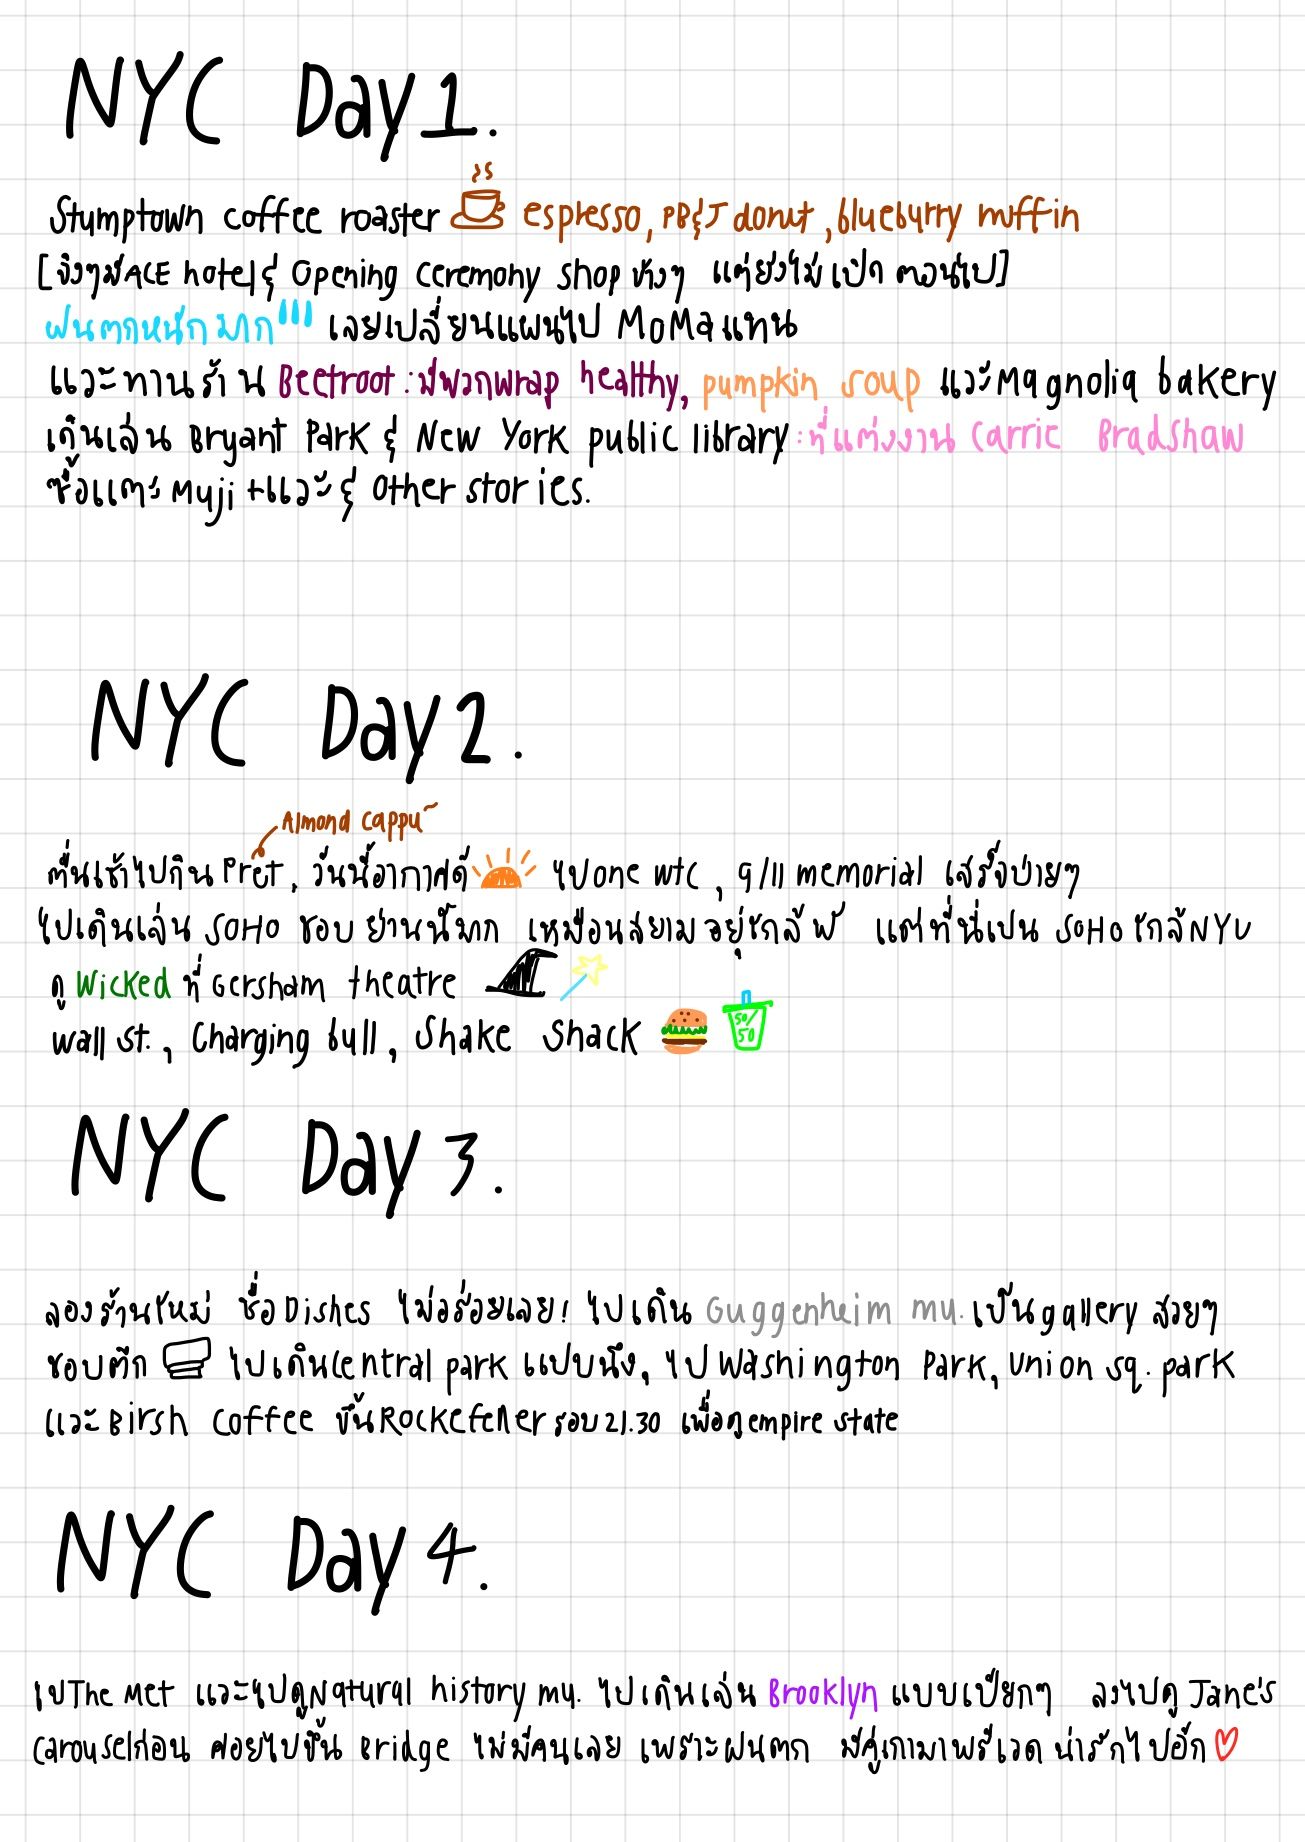 NYC Day 1.
Stumptown coffee roaster espresso, PB&J donut, blueburry muffin
[จริงๆมีACE hotel & Opening Ceremony shop ข้างๆ แต่ยังไม่เปิดตอนไป]
ฝนตกหนักมาก เลยเปลี่ยนแผนไป MoMa แทน
แวะทานร้าน Beetroot : มีพวกwrap healthy, pumpkin soup แวะMagnolia bakery
เดินเล่น Bryant Park & New York public library : ที่แต่งงาน Carrie Bradshaw
ซื้อแตะ Muji +แวะ & Other stories.
NYC Day 2.
Almond cappu~
ตื่นเช้าไปกิน Pret, วันนี้อากาศดี ไป one wtc, 9/11 memorial เสร็จบ่ายๆ
ไปเดินเล่น SOHO ชอบย่านนี้มาก เหมือนสยามอยู่ใกล้ฬ แต่ที่นี่เปน SOHO ใกล้NYU
ดู Wicked ที่ Gersham theatre
wall st., Charging bull, Shake Shack 50/50
NYC Day 3.
ลองร้านใหม่ ชื่อ Dishes ไม่อร่อยเลย! ไปเดิน Guggenheim mu. เป็นgallery สวยๆ
ชอบตึก ไปเดินCentral park แปบนึง, ไป Washington Park, Union sq. park
แวะ Birsh Coffee ขึ้นRockefeller รอบ 21.30 เพื่อดู empire state
NYC Day 4.
ไปThe Met แวะไปดูNatural history mu. ไปเดินเล่น Brooklyn แบบเปียกๆ ลงไปดู Jane's
Carouselก่อน ค่อยไปขึ้น Bridge ไม่มีคนเลย เพราะฝนตก มีคู่เกามาพรีเวด น่ารักไปอีก